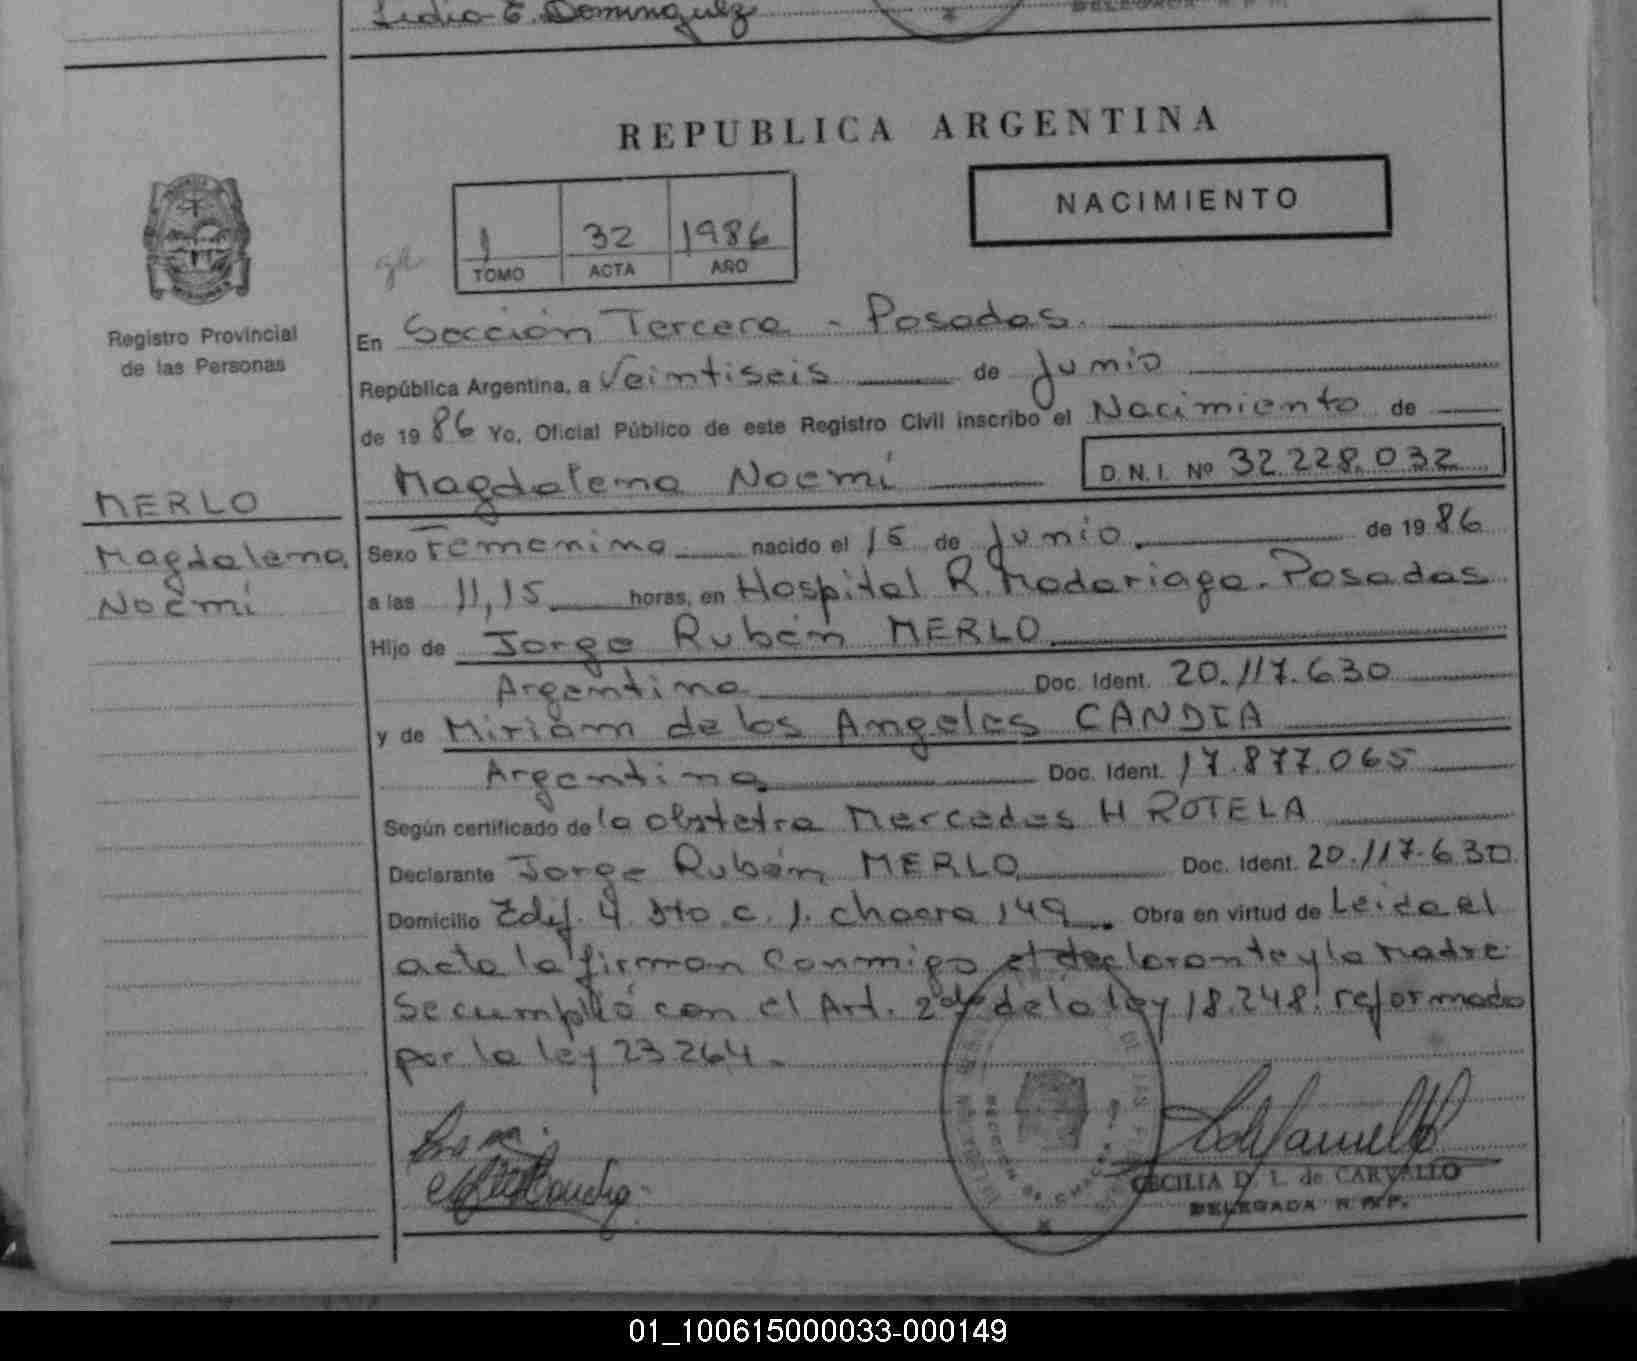 Lidia E. Dominguez
REPUBLICA ARGENTINA
NACIMIENTO
1 32 1986
TOMO ACTA AÑO
Registro Provincial
de las Personas
En Sección Tercera - Posadas.
República Argentina, a Veintiseis de Junio
de 1986 Yo, Oficial Público de este Registro Civil inscribo el Nacimiento de
Magdalena Noemí D.N.I. Nº 32.228.032
MERLO
Magdalena
Noemí
Sexo Femenino nacido el 15 de Junio de 1986
a las 11,15 horas, en Hospital R. Madariaga - Posadas
Hijo de Jorge Rubén MERLO
Argentino Doc. Ident. 20.117.630
y de Miriam de los Angeles CANDIA
Argentina Doc. Ident. 17.877.065
Según certificado de la obstetra Mercedes H ROTELA
Declarante Jorge Rubén MERLO Doc. Ident. 20.117.630
Domicilio Edif. 4. Dto. c. 1. chacra 149 Obra en virtud de Leida el
acta la firman conmigo el declarante y la madre
Se cumplió con el Art. 2do de la ley 18.248 reformado
por la ley 23264.
CECILIA D. L. de CARVALLO
DELEGADA R.P.P.
01_100615000033-000149